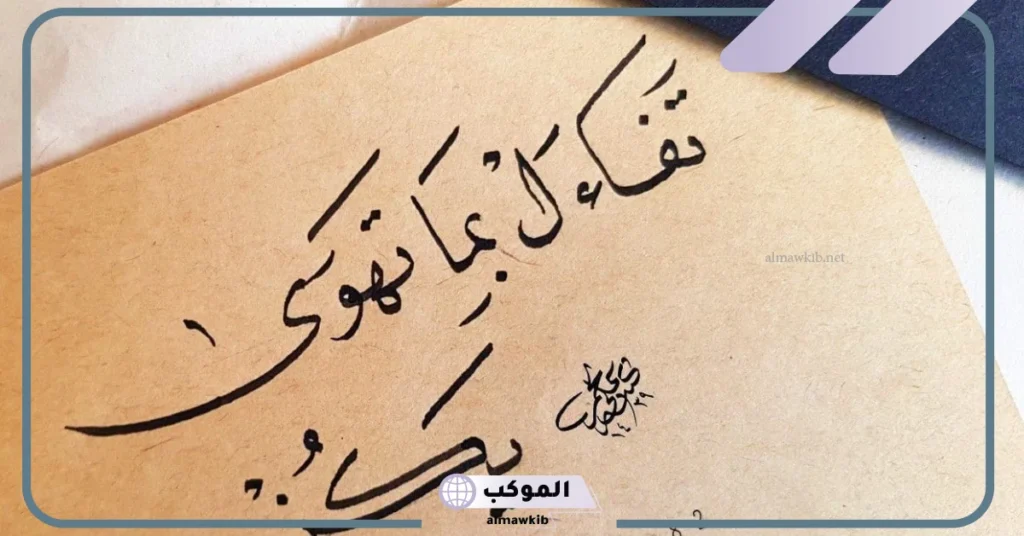 تفاءلْ بِمَا تهوَى
يَكُنْ
almawkib.net
الموكب
almawkib